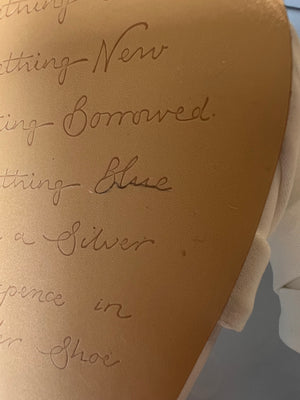 ething New
ing Borrowed.
thing Blue
a Silver
pence in
er Shoe